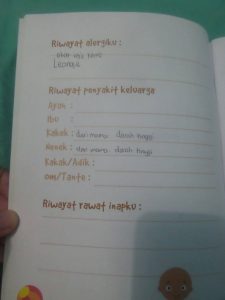 Riwayat alergiku :
Riwayat penyakit keluarga
Ayah :
Ibu :
Kakek : dari mama darah tinggi
Nenek : dari mama darah tinggi
Kakak/Adik :
Om/Tante :
Riwayat rawat inapku :